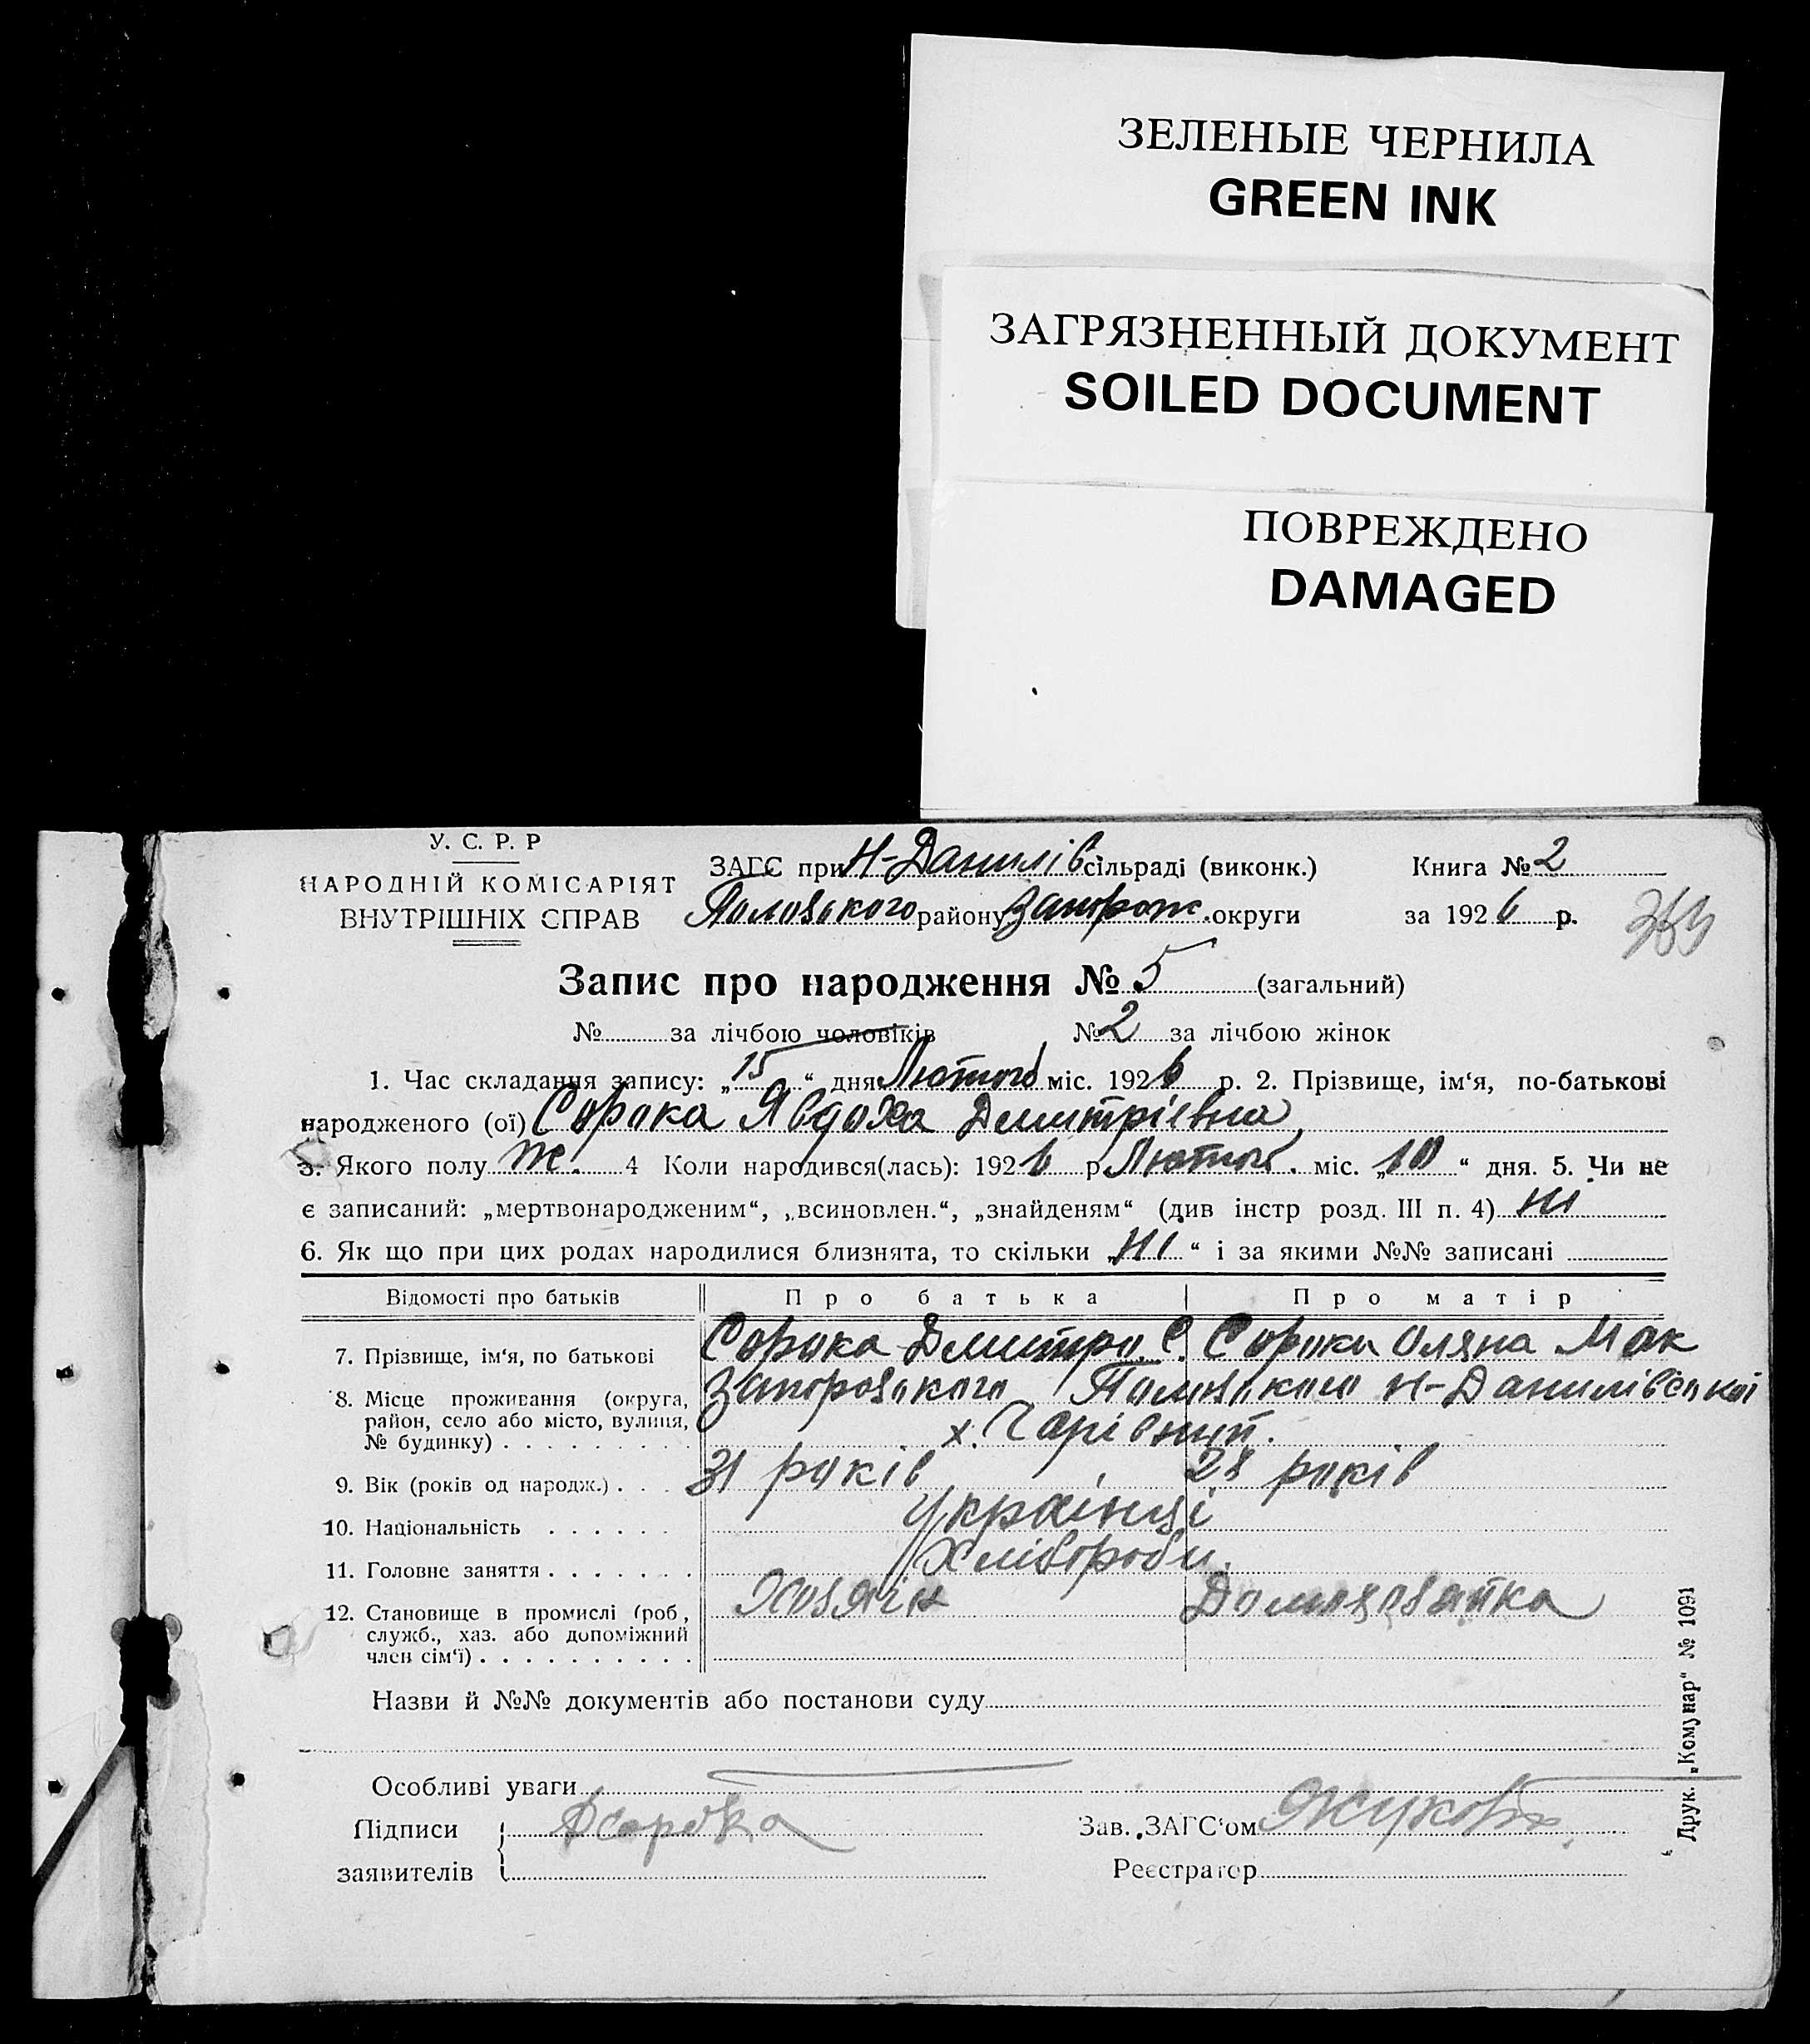 ЗЕЛЕНЫЕ ЧЕРНИЛА
GREEN INK
ЗАГРЯЗНЕННЫЙ ДОКУМЕНТ
SOILED DOCUMENT
ПОВРЕЖДЕНО
DAMAGED
У. С. Р. Р
НАРОДНІЙ КОМІСАРІЯТ
ВНУТРІШНІХ СПРАВ
ЗАГС при Н-Данилів сільраді (виконк.) Книга № 2
району Запорож. округи за 1926 р.
Запис про народження № 5 (загальний)
№ за лічбою чоловіків № 2 за лічбою жінок
1. Час складання запису: „15“ дня Лютого міс. 1926 р. 2. Прізвище, ім‘я, по-батькові
народженого (ої) Сорока Явдоха Демитріевна
3. Якого полу ж. 4 Коли народився(лась): 1926 р Лютого. міс. „10“ дня. 5. Чи не
є записаний: „мертвонародженим“, „всиновлен.“, „знайденям“ (див інстр розд. III п. 4) ні
6. Як що при цих родах народилися близнята, то скільки „ні“ і за якими №№ записані
Відомості про батьків Про батька Про матір
7. Прізвище, ім‘я, по батькові Сорока Дмитро С. Сорока Оляна Мак
8. Місце проживання (округа, район, село або місто, вулиця, № будинку) Н-Данилівської
х. Чарівний.
9. Вік (років од народж.) 31 років 28 років
10. Національність українці
11. Головне заняття Хлібороби.
12. Становище в промислі (роб, служб., хаз. або допоміжний член сім‘ї) Хозяін Домохозайка
Назви й №№ документів або постанови суду
Особливі уваги
Підписи заявителів Д Сорока
Зав. ЗАГС‘ом
Реєстратор
Друк. „Комунар“ № 1091